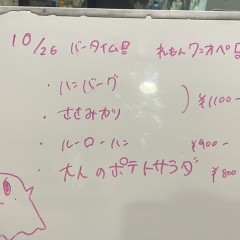 10/26 バータイム!! れもんワンオペ!!
・ハンバーグ
・ささみカツ ) ¥1100-
・ルーローハン ¥900-
・大人のポテトサラダ ¥800